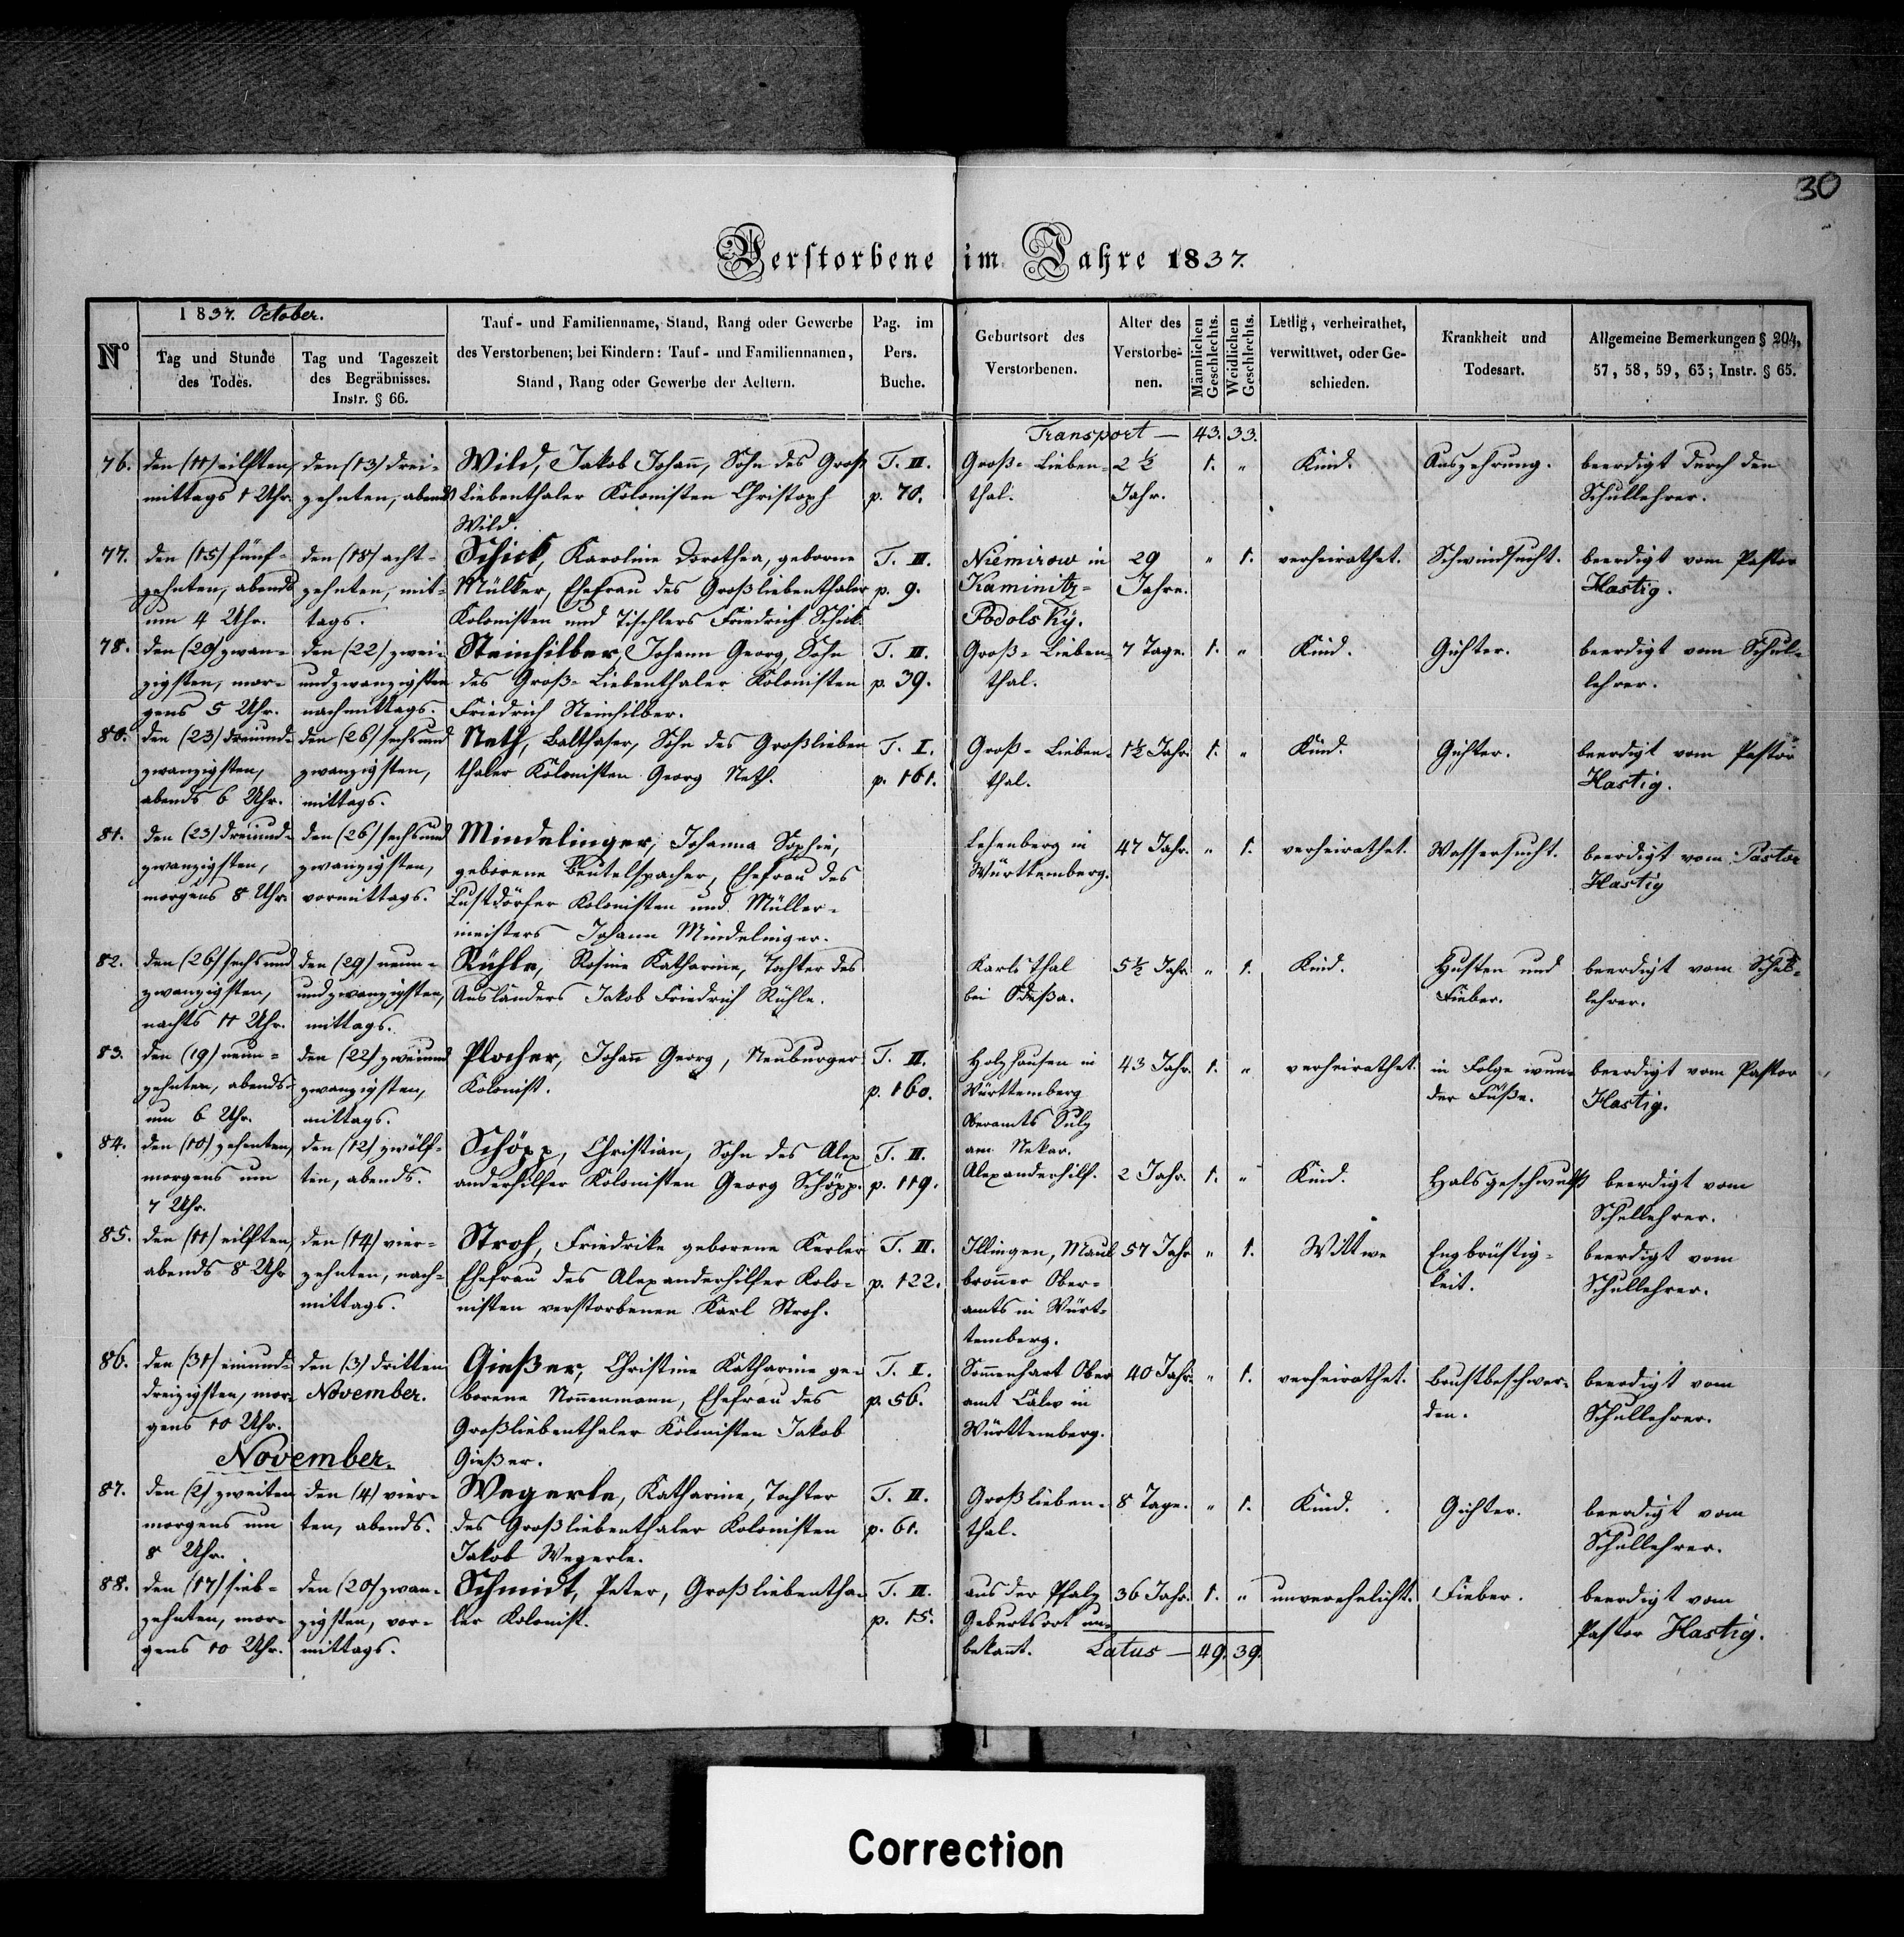 30
Verstorbene im Jahre 1837.
1837. October.
Nº
Tag und Stunde
des Todes.
Tag und Tageszeit
des Begräbnisses.
Instr. § 66.
Tauf- und Familienname, Stand, Rang oder Gewerbe
des Verstorbenen; bei Kindern: Tauf- und Familiennamen,
Stand, Rang oder Gewerbe der Aeltern.
Pag. im
Pers.
Buche.
Geburtsort des
Verstorbenen.
Alter des
Verstorbe-
nen.
Männlichen
Geschlechts.
Weiblichen
Geschlechts.
Ledig, verheirathet,
verwittwet, oder Ge-
schieden.
Krankheit und
Todesart.
Allgemeine Bemerkungen § 204,
57, 58, 59, 63; Instr. § 65.
Transport — 43. 33.
76.
den (11) eilften,
mittags 1 Uhr.
den (13) drei-
zehnten, abends
Wild, Jakob Johann, Sohn des Groß
Liebenthaler Kolonisten Christoph
Wild.
T. II.
p. 70.
Groß-Lieben-
thal.
2 ½
Jahr.
1. "
Kind.
Auszehrung.
beerdigt durch den
Schullehrer.
77.
den (15) fünf-
zehnten, abends
um 4 Uhr.
den (18) acht-
zehnten, mit-
tags.
Schick, Karoline Dorothea, geborne
Mülker, Ehefrau des Großliebenthaler
Kolonisten und Tischlers Friedrich Schick.
T. II.
p. 9.
Niemirow in
Kaminitz-
Podolsky.
29
Jahre.
" 1.
verheirathet.
Schwindsucht.
beerdigt vom Pastor
Hastig.
78.
den (20) zwan-
zigsten, mor-
gens 5 Uhr.
den (22) zwei-
undzwanzigsten
nachmittags.
Steinhilber, Johann Georg, Sohn
des Groß-Liebenthaler Kolonisten
Friedrich Steinhilber.
T. II.
p. 39.
Groß-Lieben-
thal.
7 Tage.
1. "
Kind.
Gichter.
beerdigt vom Schul-
lehrer.
80.
den (23) dreiund-
zwanzigsten,
abends 6 Uhr.
den (26) sechsund
zwanzigsten,
mittags.
Neth, Balthaser, Sohn des Großlieben
thaler Kolonisten Georg Neth.
T. I.
p. 161.
Groß-Lieben-
thal.
1½ Jahr.
1. "
Kind.
Gichter.
beerdigt vom Pastor
Hastig.
81.
den (23) dreiund-
zwanzigsten,
morgens 8 Uhr.
den (26) sechsund
zwanzigsten,
vormittags.
Mindelinger, Johanna Sophie,
geborene Beutelspacher, Ehefrau des
Lustdörfer Kolonisten und Müller-
meisters Johann Mindelinger.
Lehenberg in
Württemberg.
47 Jahr.
" 1.
verheirathet.
Wassersucht.
beerdigt vom Pastor
Hastig
82.
den (26) sechsund
zwanzigsten,
nachts 11 Uhr.
den (29) neun-
undzwanzigsten,
mittags.
Rühle, Rosine Katharine, Tochter des
Ausländers Jakob Friedrich Rühle.
Karlsthal
bei Odeßa.
5½ Jahr
" 1.
Kind.
Husten und
Fieber.
beerdigt vom Schul-
lehrer.
83.
den (19) neun-
zehnten, abends
um 6 Uhr.
den (22) zweiund
zwanzigsten,
mittags.
Plocher, Johann Georg, Neuburger
Kolonist.
T. II.
p. 160.
Holzhausen in
Württemberg
Oberamts Sulz
am Nekar.
43 Jahr.
1. "
verheirathet.
in Folge wun-
der Füße.
beerdigt vom Pastor
Hastig.
84.
den (10) zehnten,
morgens um
7 Uhr.
den (12) zwölf-
ten, abends.
Schöpp, Christian, Sohn des Alex
anderhilfer Kolonisten Georg Schöpp.
T. II.
p. 119.
Alexanderhilf.
2 Jahr.
1. "
Kind.
Halsgeschwulst
beerdigt vom
Schullehrer.
85.
den (11) eilften,
abends 8 Uhr
den (14) vier-
zehnten, nach-
mittags.
Stroh, Friedrike geborene Kerler
Ehefrau des Alexanderhilfer Kolo-
nisten verstorbenen Karl Stroh.
T. II.
p. 122.
Illingen, Maul
bronner Ober-
amts in Würt-
temberg.
57 Jahr
" 1.
Wittwe
Engbrüstig-
keit.
beerdigt vom
Schullehrer.
86.
den (31) einund-
dreizigsten, mor-
gens 10 Uhr.
den (3) dritten
November.
Gießer, Christine Katharine ge-
borene Nonnenmann, Ehefrau des
Großliebenthaler Kolonisten Jakob
Gießer.
T. I.
p. 56.
Sommenhart Ober
amt Calw in
Württemberg.
40 Jahr.
" 1.
verheirathet.
Brustbeschwer-
den.
beerdigt vom
Schullehrer.
November.
87.
den (2) zweiten
morgens um
8 Uhr.
den (4) vier-
ten, abends.
Wegerle, Katharine, Tochter
des Großliebenthaler Kolonisten
Jakob Wegerle.
T. II.
p. 61.
Großlieben-
thal.
8 Tage.
" 1.
Kind.
Gichter.
beerdigt vom
Schullehrer.
88.
den (17) sieb-
zehnten, mor-
gens 10 Uhr.
den (20) zwan-
zigsten, vor-
mittags.
Schmidt, Peter, Großliebentha-
ler Kolonist.
T. II.
p. 15.
aus der Pfalz
Geburtsort un-
bekannt.
36 Jahr.
1. "
unverehelicht.
Fieber.
beerdigt vom
Pastor Hastig.
Latus — 49. 39.
Correction